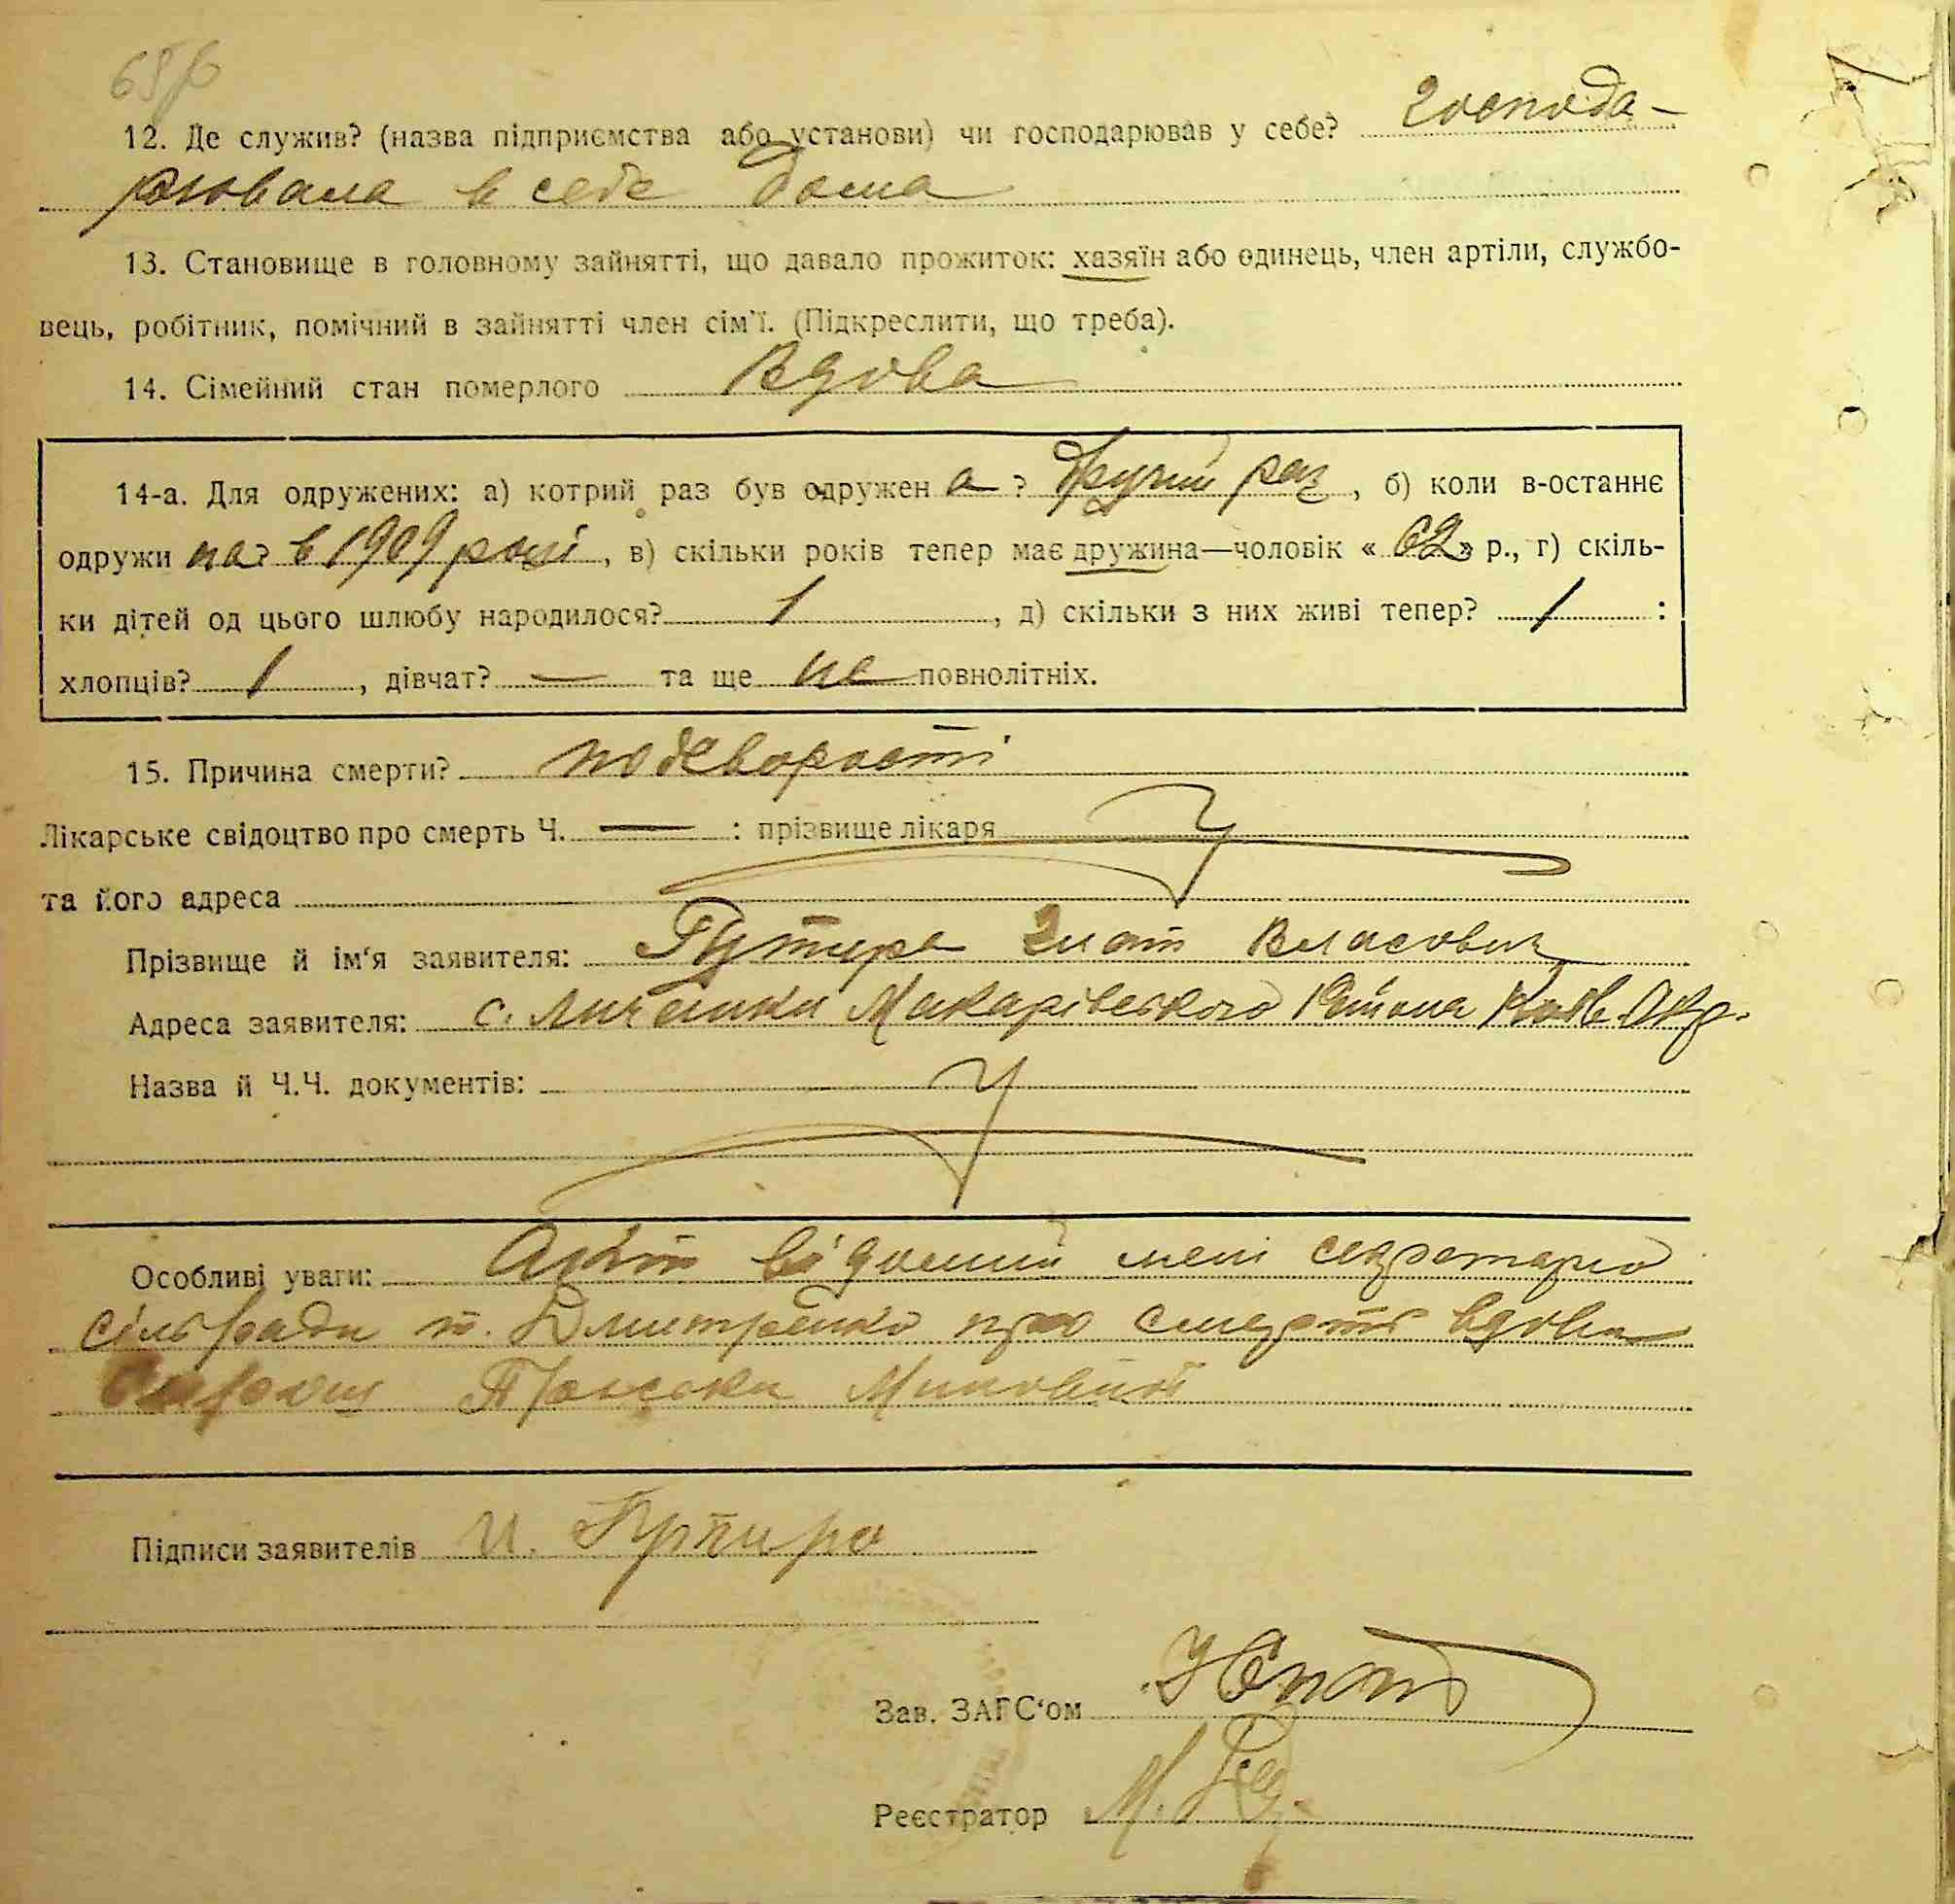 12. Де служив? (назва підприємства або установи) чи господарював у себе? господа-
рювала в себе дома
13. Становище в головному зайнятті, що давало прожиток: хазяїн або одинець, член артіли, службо-
вець, робітник, помічний в зайнятті член сім'ї. (Підкреслити, що треба).
14. Сімейний стан померлого Вдова
14-а. Для одружених: а) котрий раз був одружен а? другий раз, б) коли в-останнє
одружи на? в 1909 році, в) скільки років тепер має дружина—чоловік «62» р., г) скіль-
ки дітей од цього шлюбу народилося? 1, д) скільки з них живі тепер? 1 :
хлопців? 1, дівчат? — та ще не повнолітніх.
15. Причина смерти? по старості
Лікарське свідоцтво про смерть Ч. — : прізвище лікаря
та його адреса
Прізвище й ім'я заявителя: Гнат Власович
Адреса заявителя: с. Макарівського Района Київ. Окр.
Назва й Ч.Ч. документів:
Особливі уваги: Акт мені секретарю
сільради т. Дмитренко про смерть вдови
Підписи заявителів
Зав. ЗАГС'ом
Реєстратор